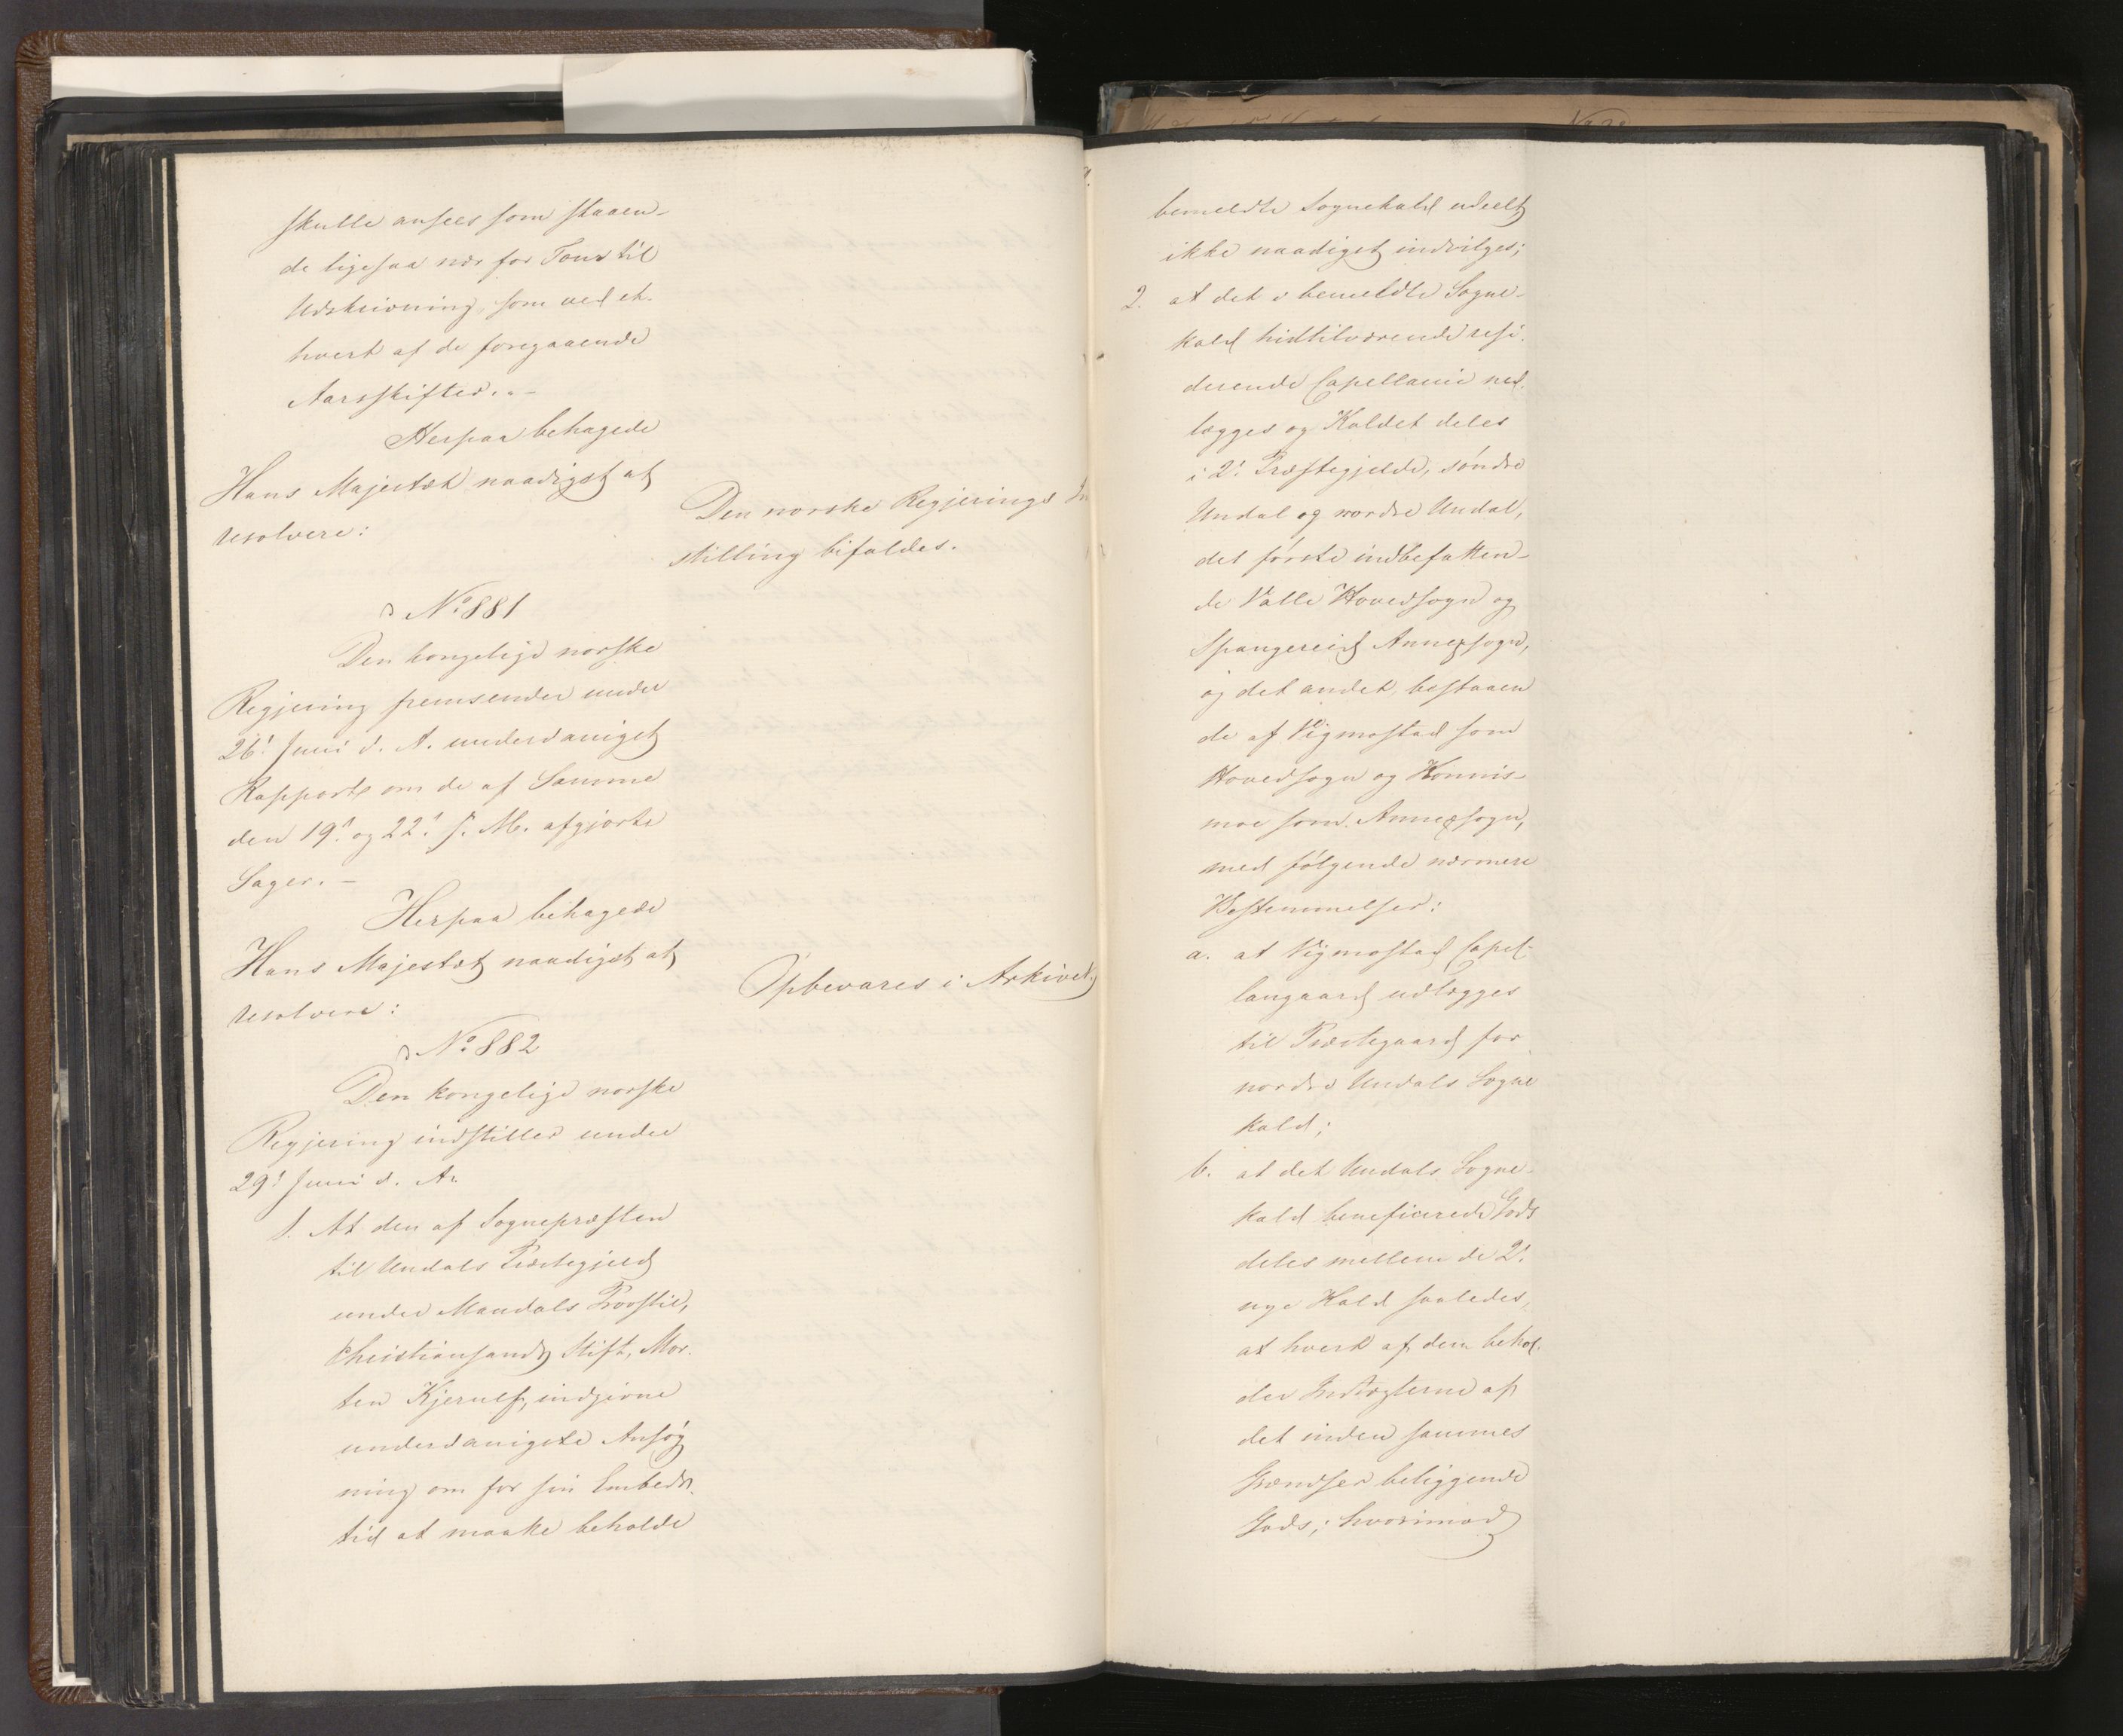 skulle ansees som staaen-
de ligesaa nær for Tour til
Udskrivning, som ved et-
hvert af de foregaaende
Aarsskifter. -
Herpaa behagede
Hans Majestæt naadigst at
resolvere:
Den norske Regjerings In
stilling bifaldes.
No. 881
Den kongelige norske
Regjering fremsender under
26. Juni d. A. underdanigst
Rapport om de af Samme
den 19. og 22. s. M. afgjorte
Sager. -
Herpaa behagede
Hans Majestæt naadigst at
resolvere:
Opbevares i Arkivet
No. 882
Den kongelige norske
Regjering indstiller under
29. Juni d. A.
1. At den af Sognepræsten
til Undals Præstegjeld
under Mandals Provsti,
Christiansands Stift, Mor-
ten Kjerulf, indgivne
underdanigste Ansøg
ning om for sin Embeds-
tid at maatte beholde
bemeldte Sognekald udeelt
ikke naadigst indvilges;
2. at det i bemeldte Sogne-
kald hidtilværende resi-
derende Capellanie ned-
lægges og Kaldet deles
i 2. Præstegjelde, søndre
Undal og nordre Undal,
det første indbefatten-
de Valle Hovedsogn og
Spangereid Annexsogn,
og det andet bestaaen
de af Vigmostad som
Hovedsogn og Konnis-
moe som Annexsogn,
med følgende nærmere
Bestemmelser:
a. at Vigmostad Capel-
langaard udlægges
til Præstegaard for
nordre Undals Sogne
kald;
b. at det Undals Sogne-
kald beneficerede Gods
deles mellem de 2.
nye Kald saaledes,
at hvert af dem behol-
der Indtægterne af
det inden sammes
Grændser beliggende
Gods; hvorimod